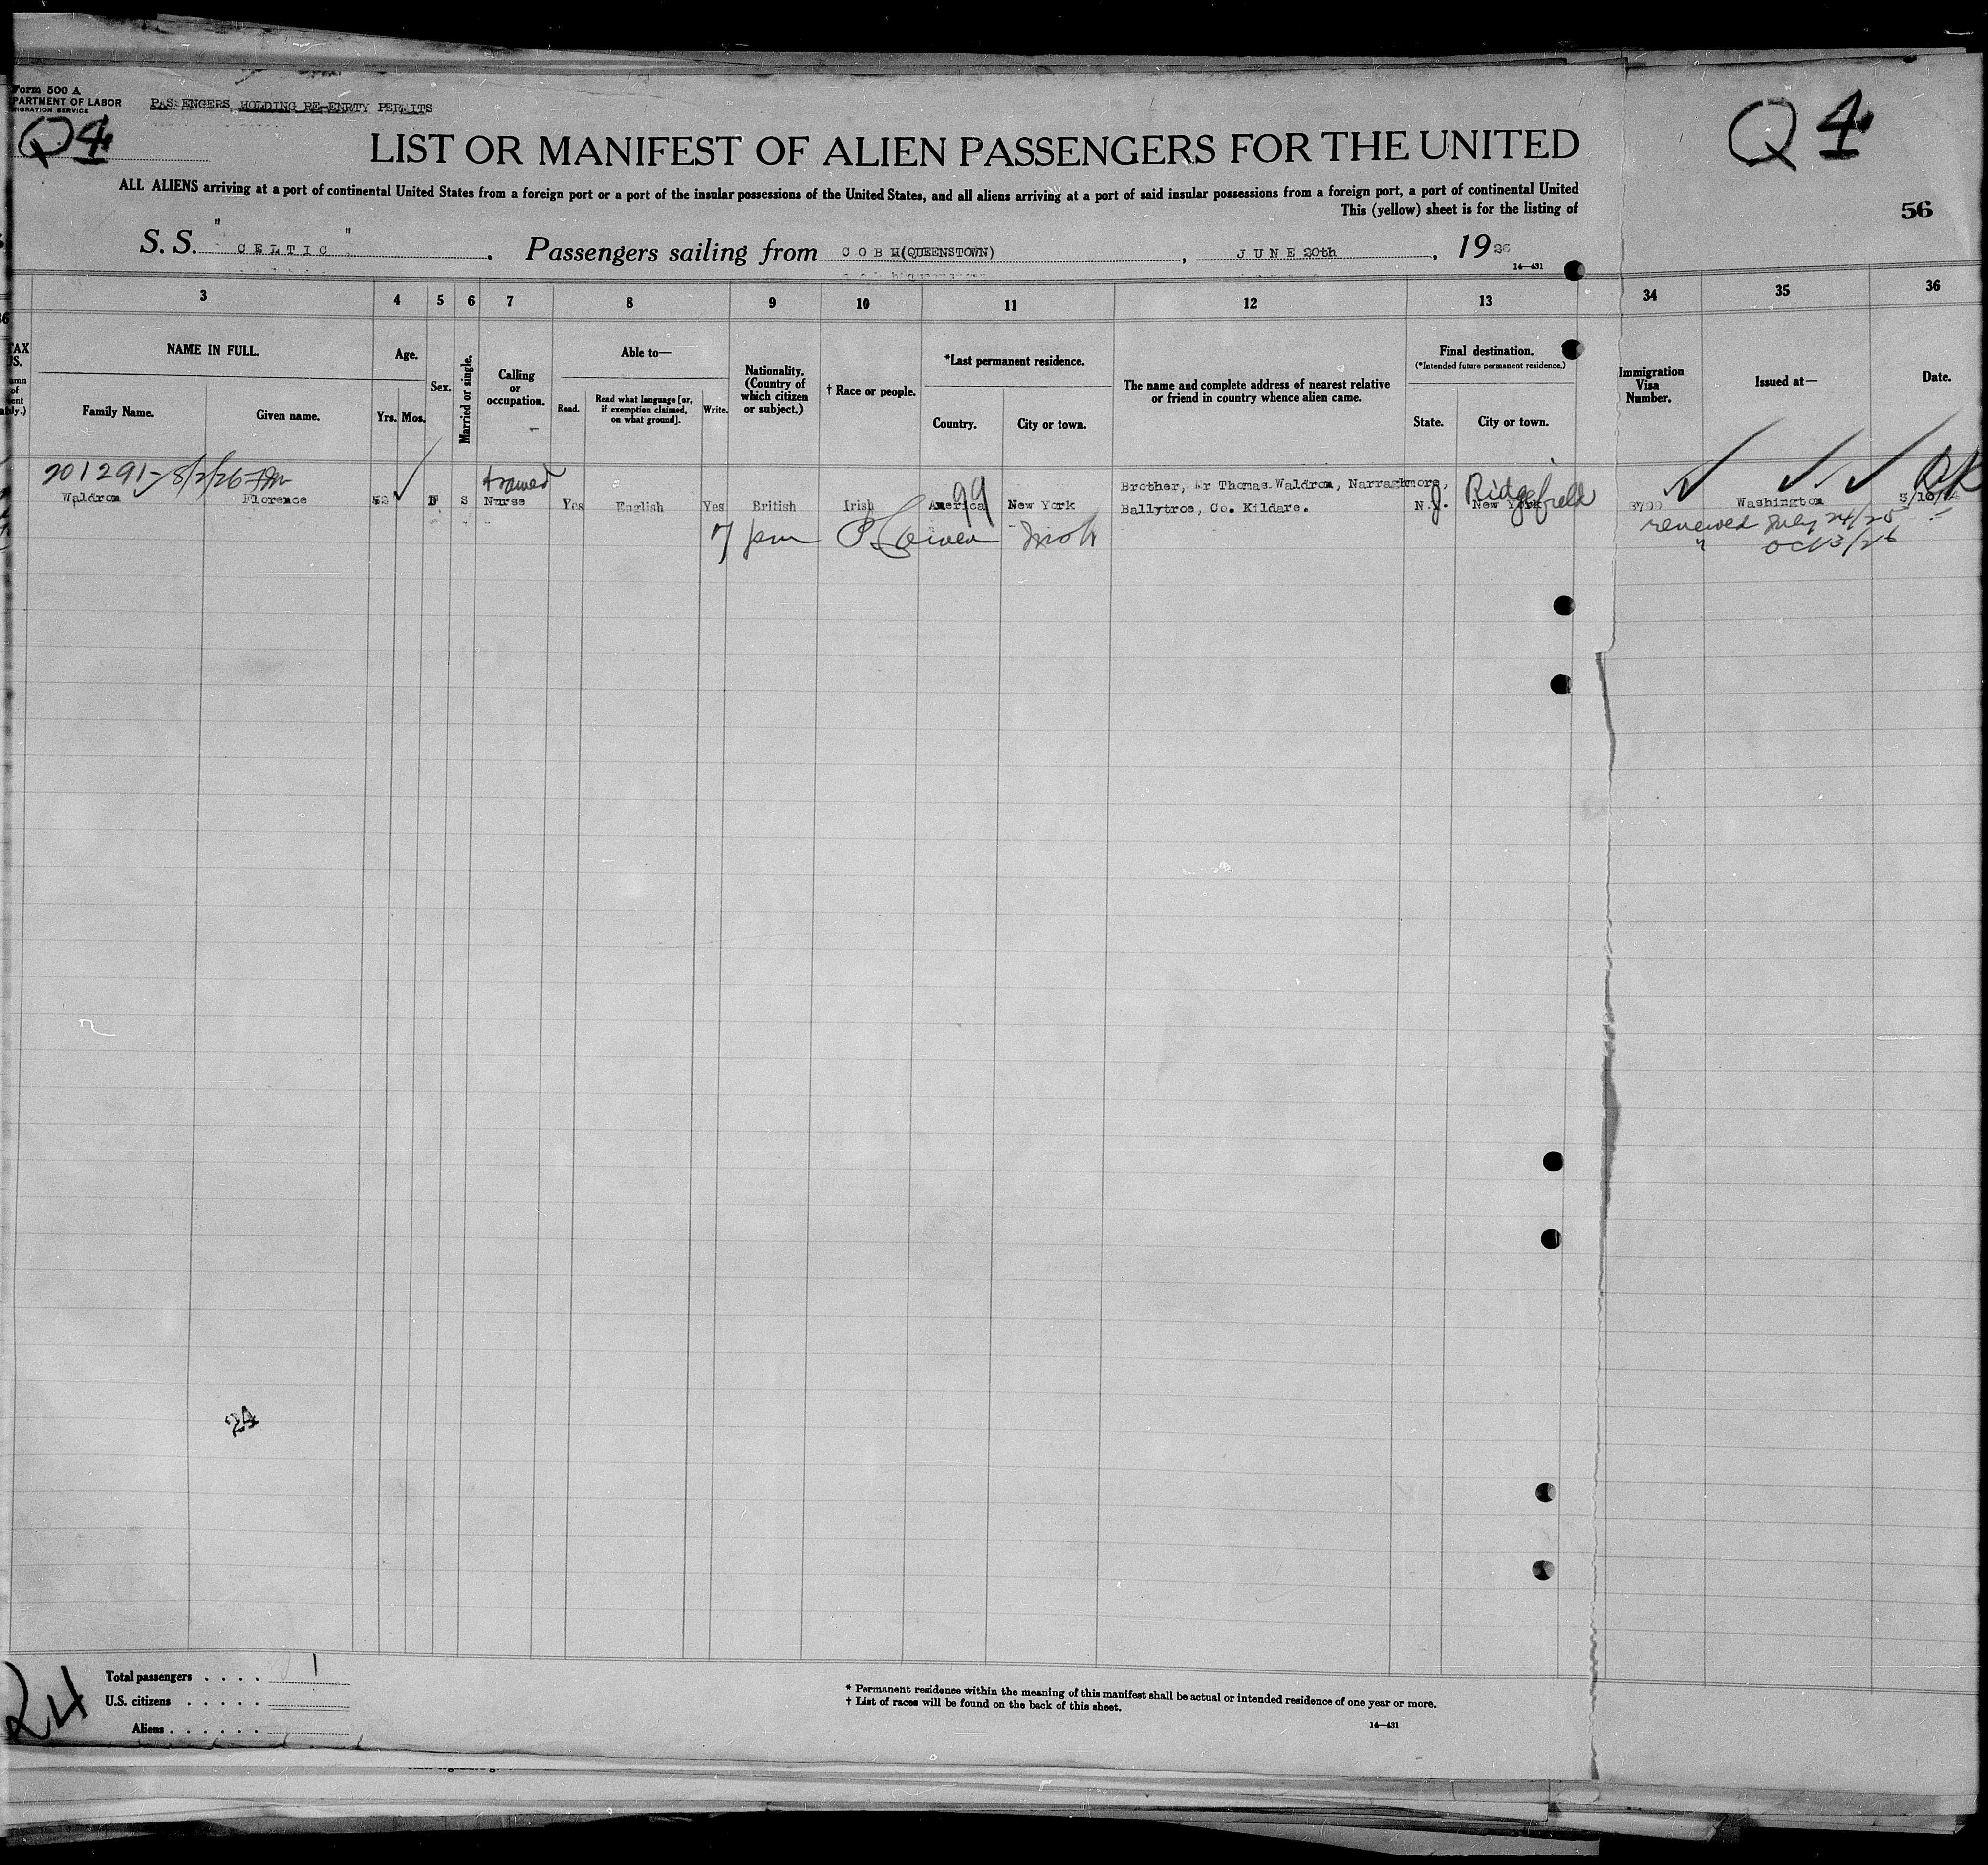 Form 500 A
PARTMENT OF LABOR
MIGRATION SERVICE
PASSENGERS HOLDING RE-ENRTY PERMITS
Q4
Q4
LIST OR MANIFEST OF ALIEN PASSENGERS FOR THE UNITED
ALL ALIENS arriving at a port of continental United States from a foreign port or a port of the insular possessions of the United States, and all aliens arriving at a port of said insular possessions from a foreign port, a port of continental United
This (yellow) sheet is for the listing of
56
S. S. "CELTIC". Passengers sailing from COBH(QUEENSTOWN), JUNE 20th, 1926
14—431
3 4 5 6 7 8 9 10 11 12 13 34 35 36
NAME IN FULL.
Family Name. Given name.
Age.
Yrs. Mos.
Sex.
Married or single.
Calling or occupation.
Able to—
Read. Read what language [or, if exemption claimed, on what ground]. Write.
Nationality. (Country of which citizen or subject.)
† Race or people.
*Last permanent residence.
Country. City or town.
The name and complete address of nearest relative or friend in country whence alien came.
Final destination.
(*Intended future permanent residence.)
State. City or town.
Immigration Visa Number.
Issued at—
Date.
201291 8/2/26
trained
Ridgefield
Waldron Florence F S Nurse Yes English Yes British Irish America New York
99
Brother, Mr Thomas Waldron, Narraghmore,
Ballytroe, Co. Kildare.
N.J. New York Washington 3/10/
renewed July 24/25
" Oct 3/26
7 pm
24
24
Total passengers . . . . 1
U.S. citizens . . . . .
Aliens . . . . . .
* Permanent residence within the meaning of this manifest shall be actual or intended residence of one year or more.
† List of races will be found on the back of this sheet.
14—431